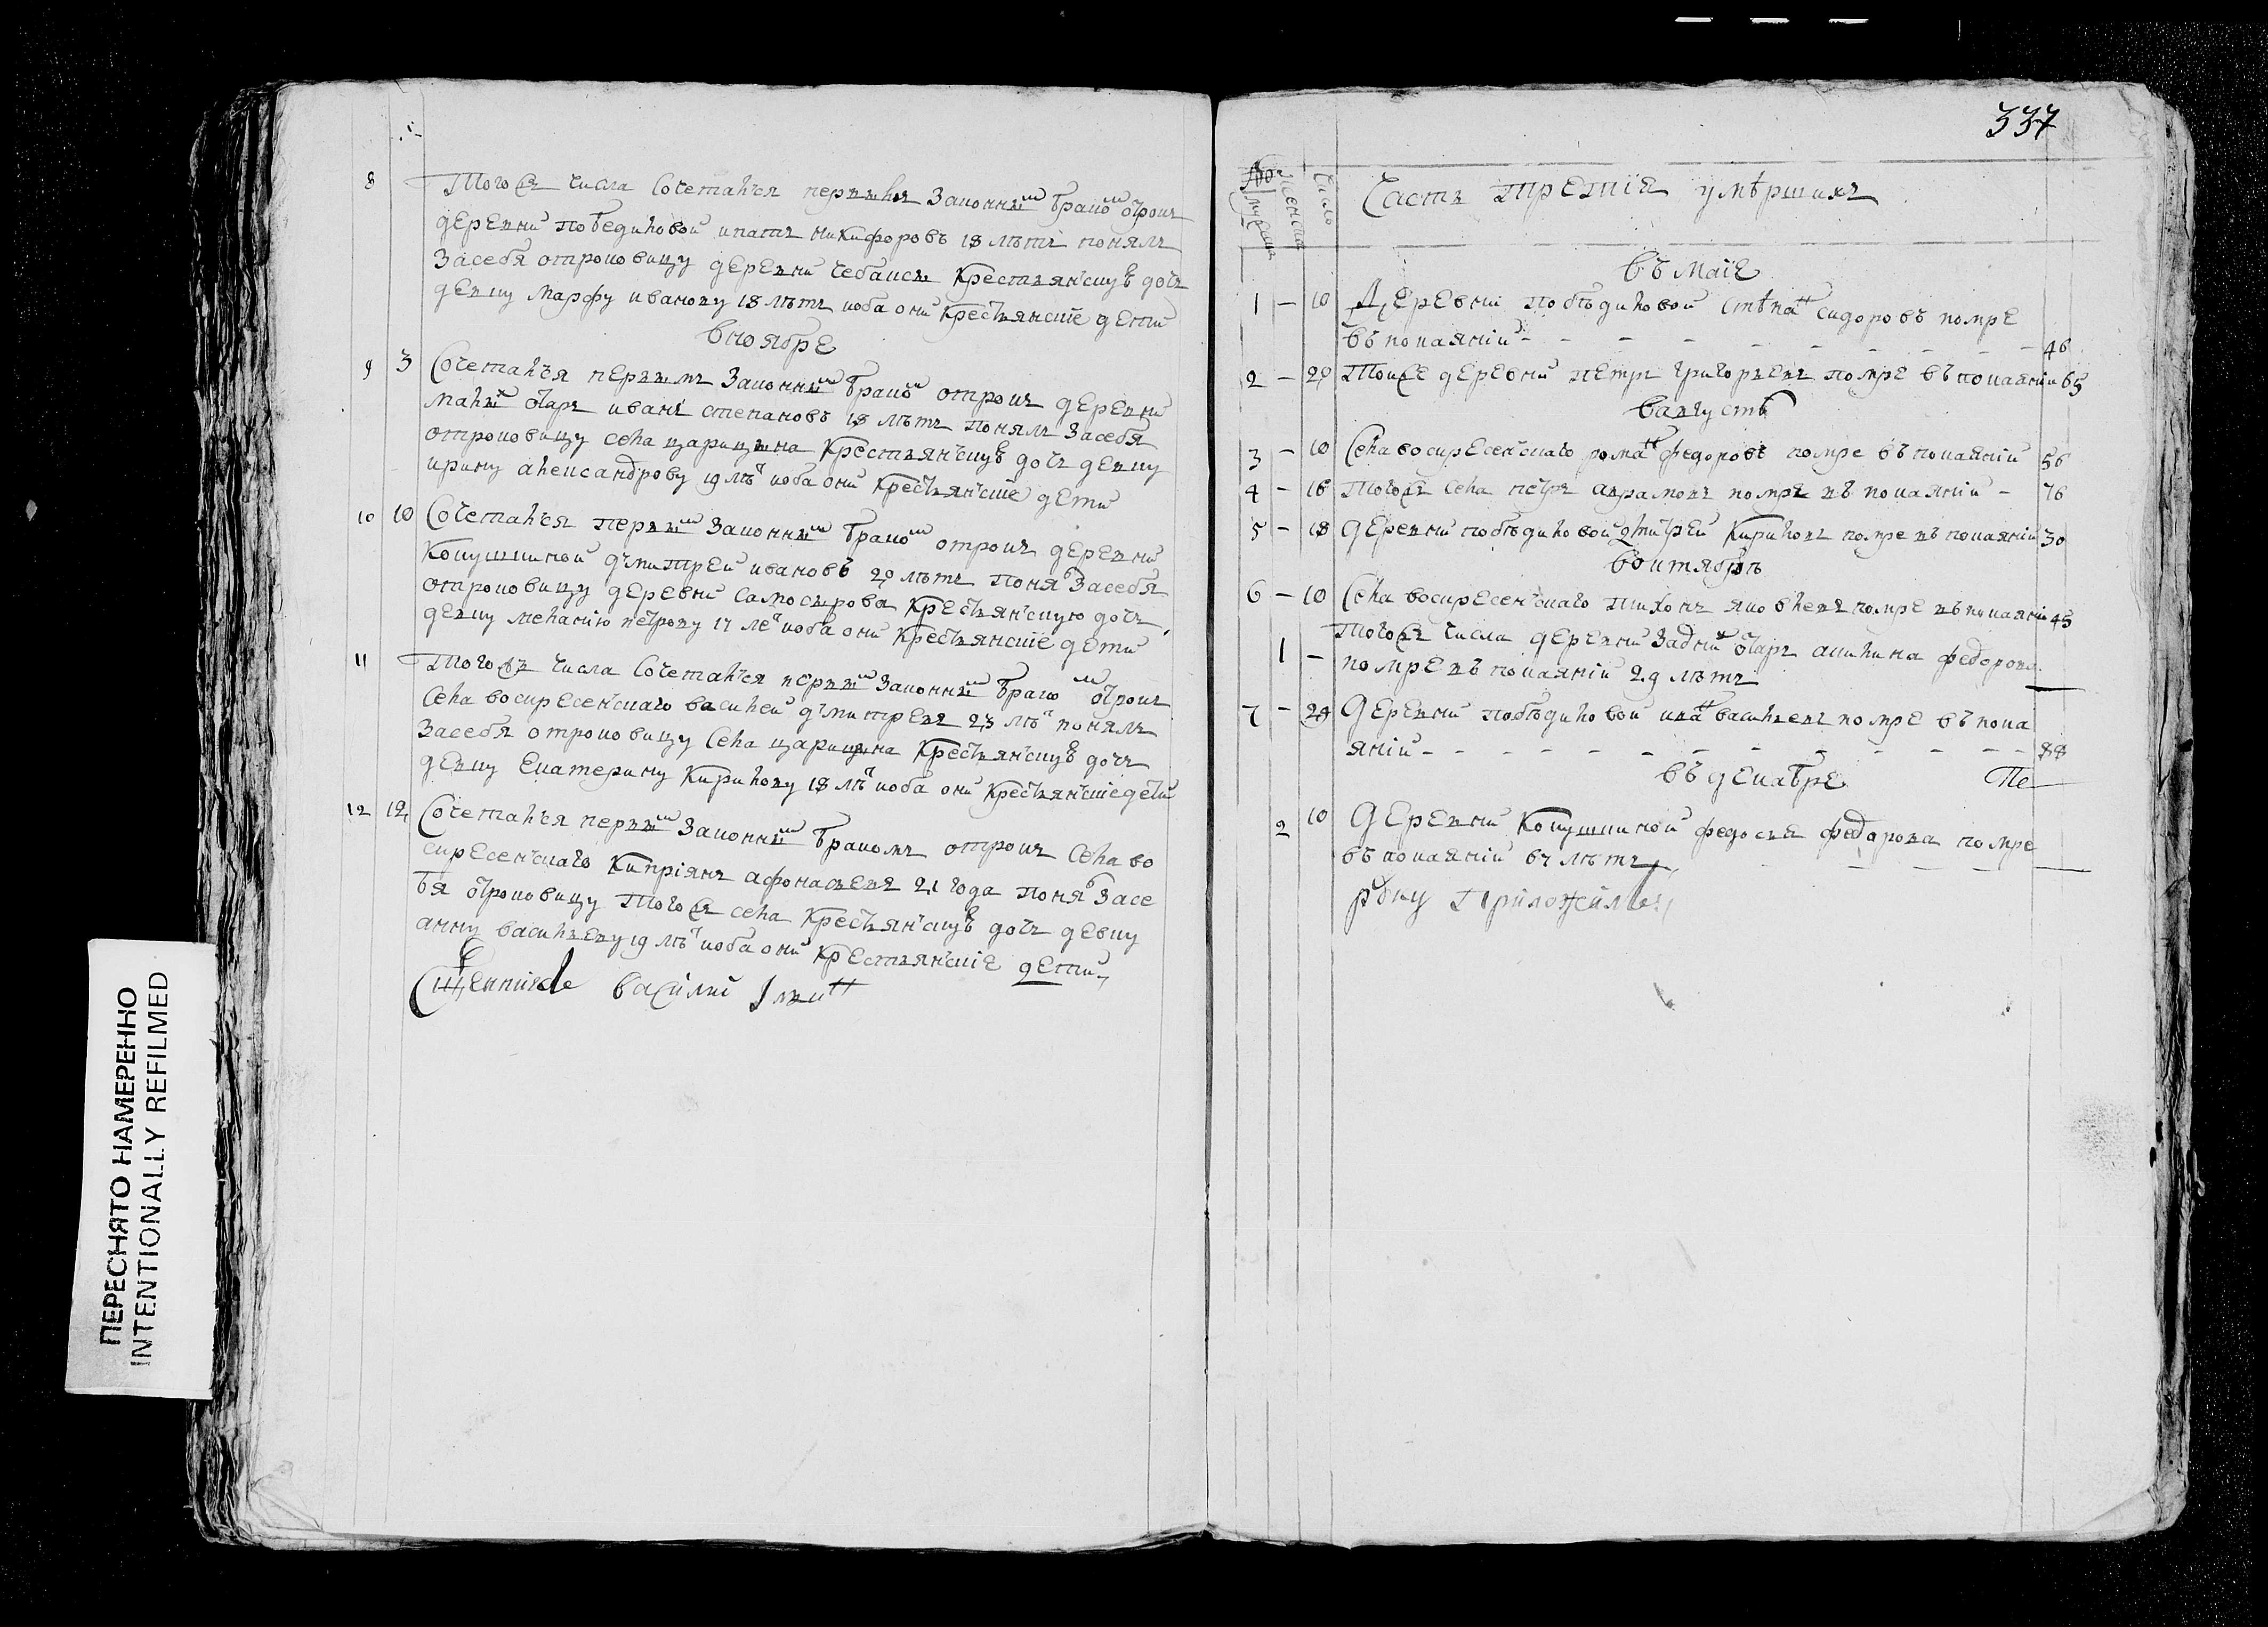 8 Тогож числа сочетался первыя законным браком отрокъ
деревни побединовой ипатъ никифоровъ 18 летъ понялъ
засебя отроковицу деревни чебаксы крестьянскую дочь
девку марфу иванову 18 летъ иоба они крестьянские дети
вноябре
9 3 Сочетался первымъ законным браком отрокъ деревни
малых отаръ иванъ степановъ 18 летъ понялъ засебя
отроковицу села царицына крестьянскую дочь девку
ирину александрову 19 лет иоба они крестьянские дети
10 10 Сочетался первым законным браком отрокъ деревни
Кокушкиной дмитрей ивановъ 20 летъ понял засебя
отроковицу деревни самосырова крестьянскую дочь
девку меланию петрову 17 лет иоба они крестьянские дети
11 Тогожъ числа сочетался первым законным браком отрокъ
села воскресенского василей дмитреевъ 23 лет понялъ
засебя отроковицу села царицына крестьянскую дочь
девку екатерину кирилову 18 лет иоба они крестьянские дети
12 12 Сочетался первым законным бракомъ отрокъ села во
скресенского киприянъ афонасьевъ 21 года понял засе
бя отроковицу тогож села крестьянскую дочь девку
анну васильеву 19 лет иоба они крестьянские дети
Священникъ василий
337
число
Часть третия умѣршихъ
въ маие
1 – 10 Деревни побѣдиловой стѣпан сидоровъ помре
въ покаянии 46
2 – 20 Тоиже деревни петръ григорьевъ помре въ покаянии 65
вавгустѣ
3 – 10 Села воскресенского роман федоровъ помре въ покаянии 56
4 – 16 Тогожъ села петръ аврамовъ помре въ покаянии – 76
5 – 18 Деревни побѣдиловой дмитрей кириловъ помре въ покаянии 30
воктябрѣ
6 – 10 Села воскресенского тихонъ яковлевъ помре въ покаянии 45
1 – Тогожъ числа деревни задних отаръ акилина федорова
помре въ покаянии 29 лѣтъ
7 – 29 Деревни побѣдиловой иван васильевъ помре въ пока
янии 88
въ декабре Пе
2 10 Деревни Кокушкиной федосья федорова помре
въ покаянии лѣтъ
руку приложилъ
ПЕРЕСНЯТО НАМЕРЕННО
INTENTIONALLY REFILMED